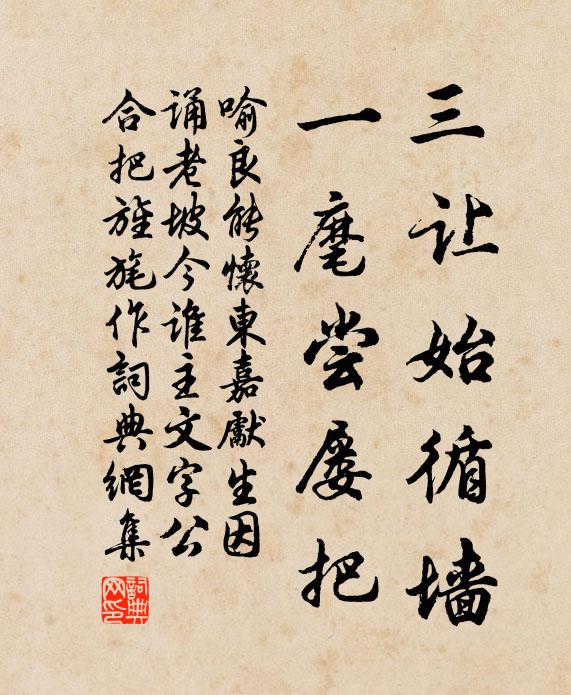 三让始循墙
一麾尝屡把
喻良能懷東嘉獻生因
诵老坡今谁主文字公
合把旌旄作詞典網集
詞典網印